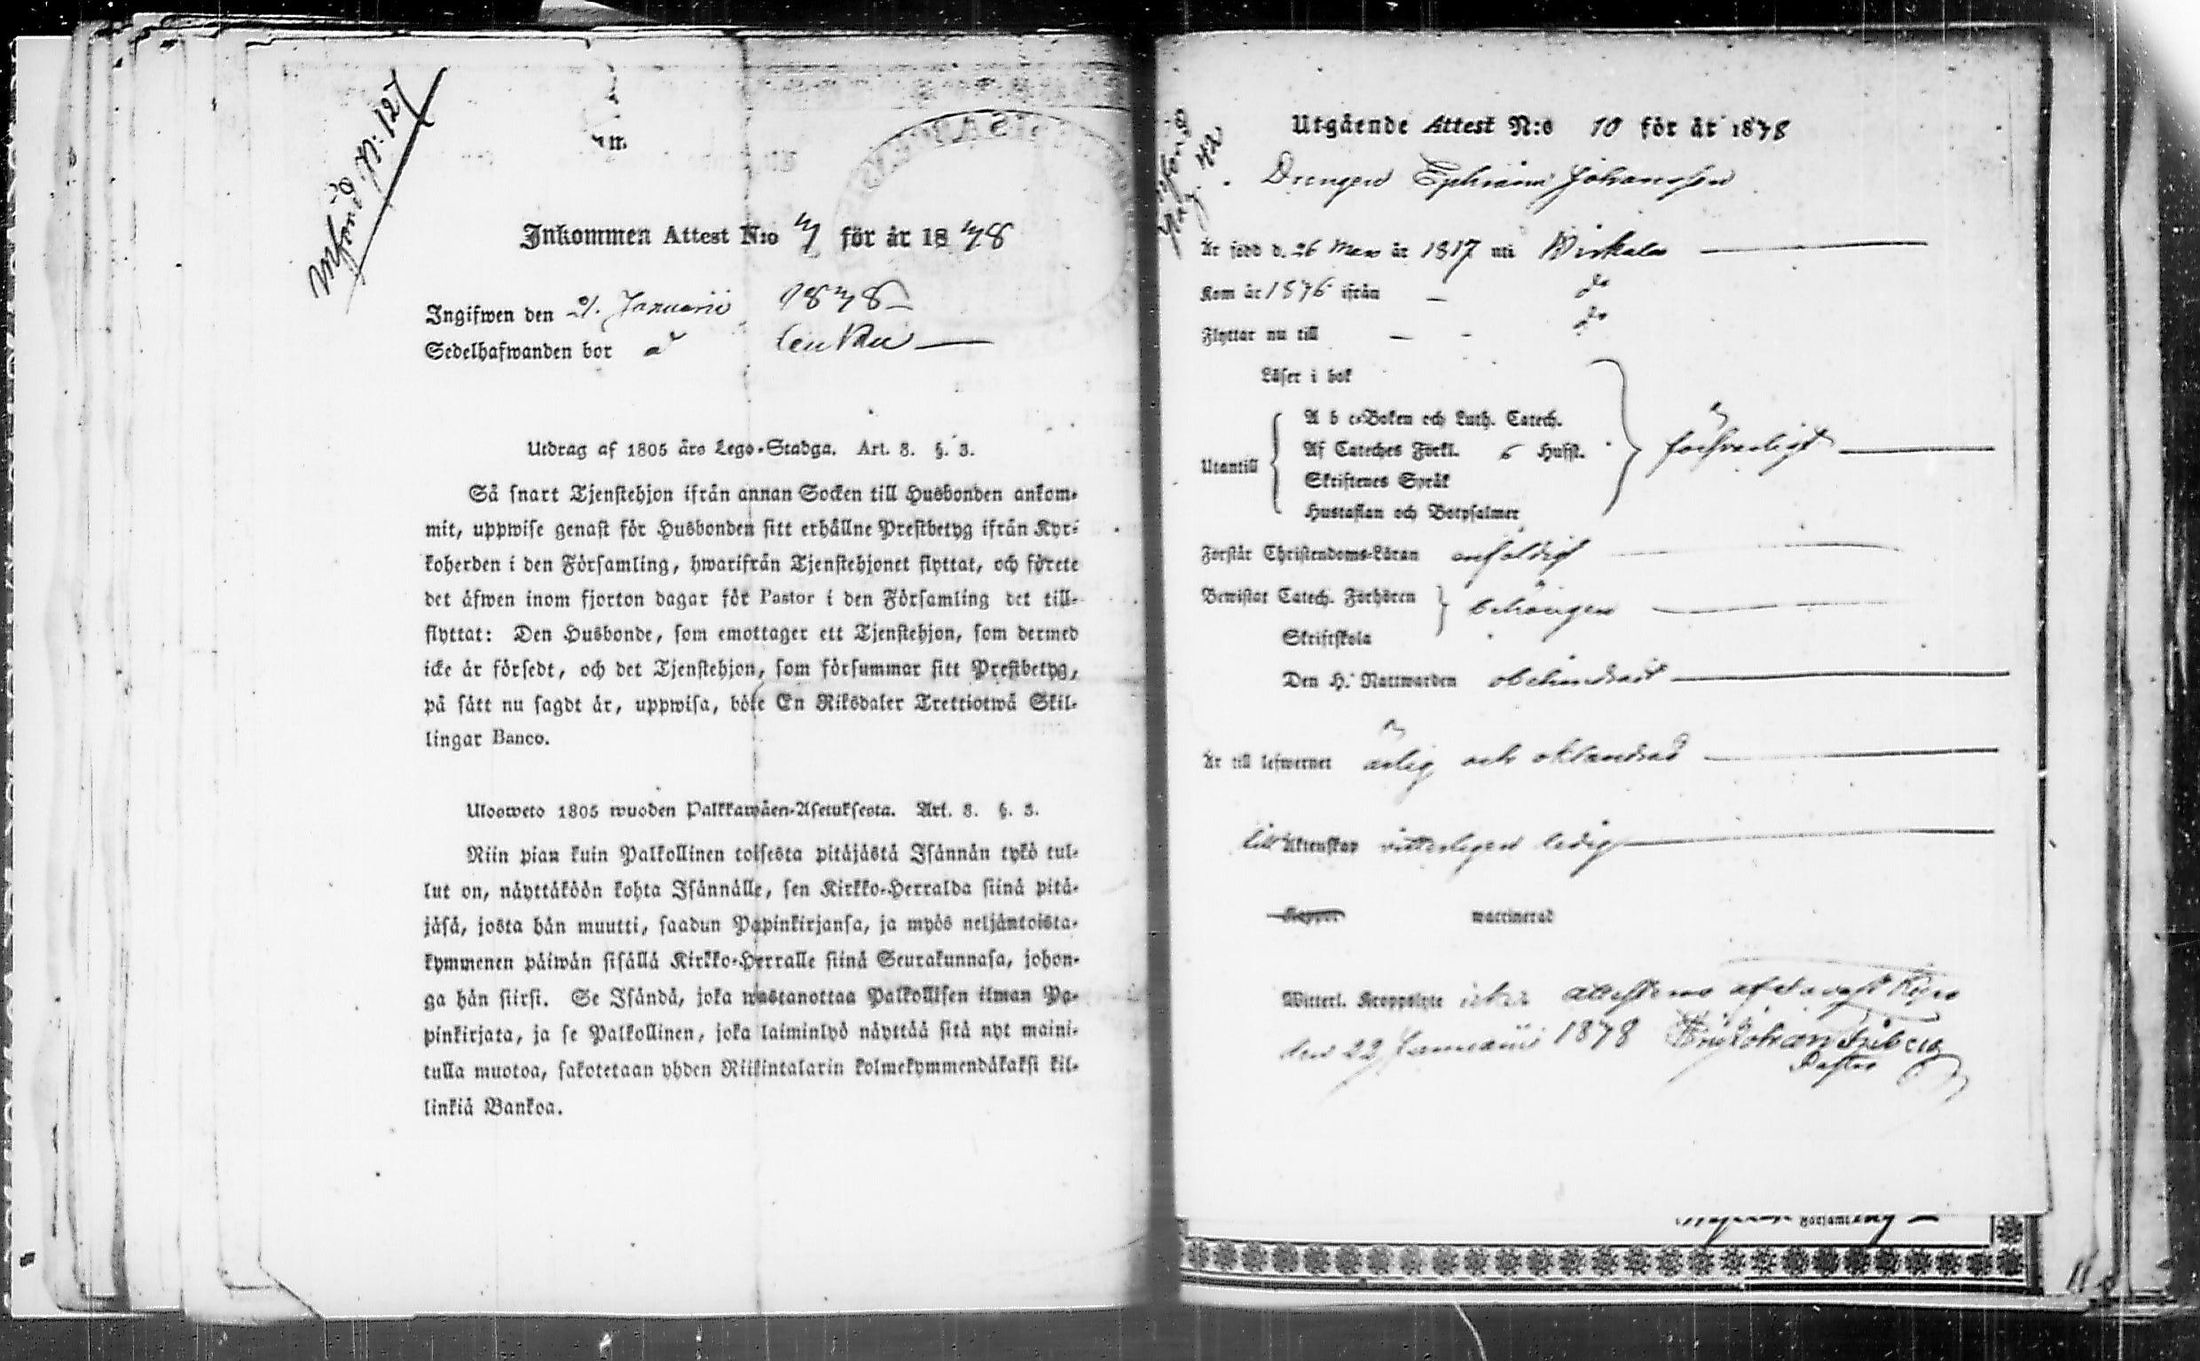 införd p. 127
Inkommen Attest N:o 7 för år 1878
Ingifwen den 21. Januarii 1878
Sedelhafwanden bor å
Utdrag af 1805 års Lego-Stadga. Art. 8. §. 3.
Så snart Tjenstehjon ifrån annan Socken till Husbonden ankom-
mit, uppwise genast för Husbonden sitt erhållne Prestbetyg ifrån Kyr-
koherden i den Församling, hwarifrån Tjenstehjonet flyttat, och förete
det äfwen inom fjorton dagar för Pastor i den Församling det till-
flyttat: Den Husbonde, som emottager ett Tjenstehjon, som dermed
icke är försedt, och det Tjenstehjon, som försummar sitt Prestbetyg,
på sätt nu sagdt är, uppwisa, böte En Riksdaler Trettiotwå Skil-
lingar Banco.
Ulosweto 1805 wuoden Palkkawäen-Asetuksesta. Art. 8. §. 3.
Niin pian kuin Palkollinen toisesta pitäjästä Isännän tykö tul-
lut on, näyttäköön kohta Isännälle, sen Kirkko-Herralda siinä pitä-
jäsä, josta hän muutti, saadun Papinkirjansa, ja myös neljäntoista-
kymmenen päiwän sisällä Kirkko-Herralle siinä Seurakunnasa, johon-
ga hän siirsi. Se Isändä, joka wastanottaa Palkollisen ilman Pa-
pinkirjata, ja se Palkollinen, joka laiminlyö näyttää sitä nyt maini-
tulla muotoa, sakotetaan yhden Riikintalarin kolmekymmendäkaksi kil-
linkiä Bankoa.
införd
pag. 42
Utgående Attest N:o 10 för år 1878
Drengen Ephraim Johansson
Är född d. 26 Mars år 1817 uti Wirkala
Kom år 1876 ifrån - do
Flyttar nu till - - do
Läser i bok
Utantill
A b c-Boken och Luth. Catech.
Af Cateches Förkl. 6 Hufst.
Skriftenes Språk
Hustaflan och Botpsalmer
försvarligt
Förstår Christendoms-Läran enfaldigt
Bewistat Catech. Förhören
Skriftskola
behörigen
Den H. Nattwarden obehindrad
Är till lefwernet ärlig och oklandrad
till Äktenskap vitterligen ledig
Koppor waccinerad
Witterl. Kroppslyte icke attesteras af
den 22 Januarii 1878
Pastor
Församling